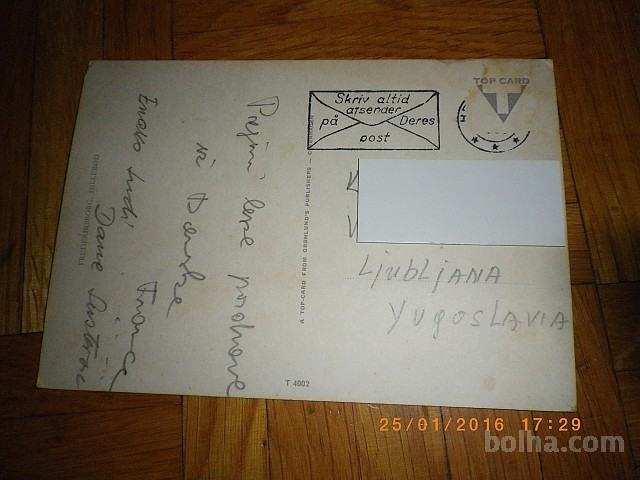 TOP CARD
T
Skriv altid
afsender
på Deres
post
FREDERIKSBORG, HILLERØD
A TOP-CARD FROM GRØNLUND'S PUBLISHERS —
Prijmi lepe pozdrave
iz Danske
France
Enako tudi
LJUBLJANA
YUGOSLAVIA
T 4002
25/01/2016 17:29
bolha.com